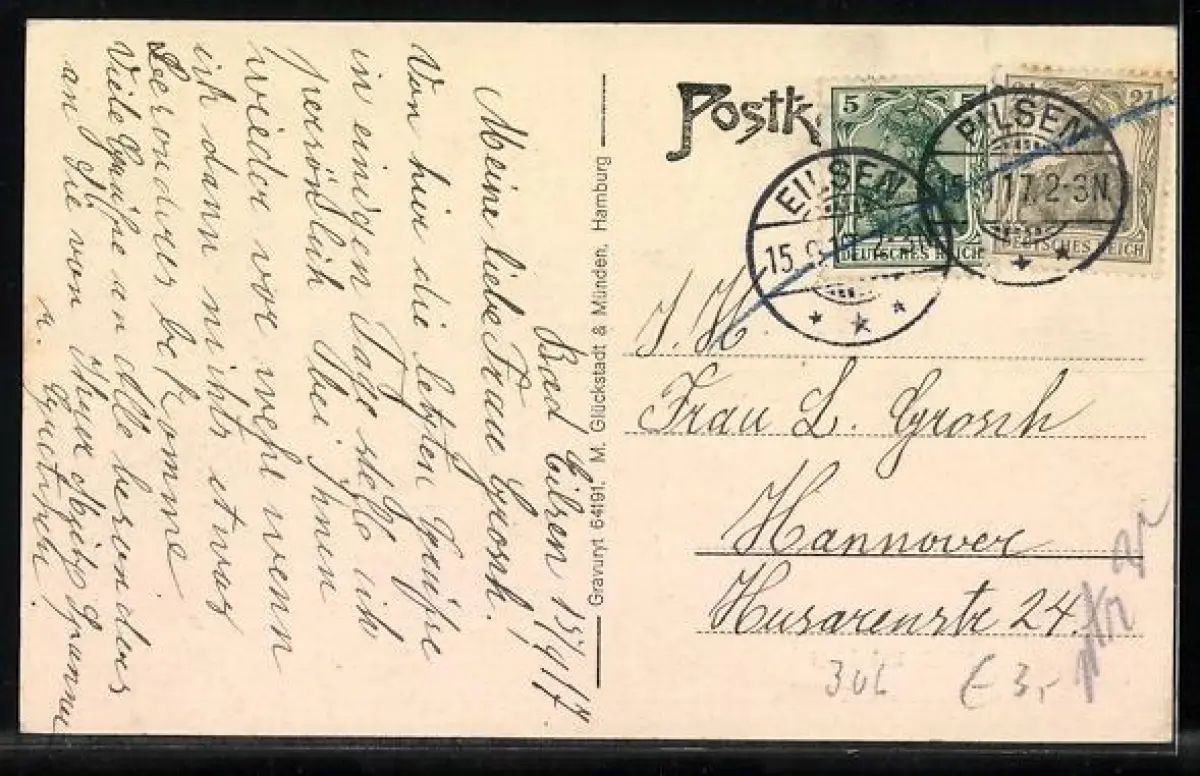 Bad Eilsen 15/9/17.
Meine liebe Frau Grosch.
Von hier die letzten Grüße
in einigen Tage stelle ich
persönlich Sbei jhnen
wieder vor wehe wenn
ich dann nichts etwas
Besonderes bekomme
Viele Grüße an Alle besonders
an Sie von Ihrer
u.
Gravuryt 64191. M. Glückstadt & Münden, Hamburg
Postk
5 5
DEUTSCHES REICH
2½
DEUTSCHES REICH
EILSEN
15.9.17. 2-3N
EILSEN
15.9.17. 2-3N
J. H.
Frau L. Grosch
Hannover
Husarenstr 24.
306
€ 3,-